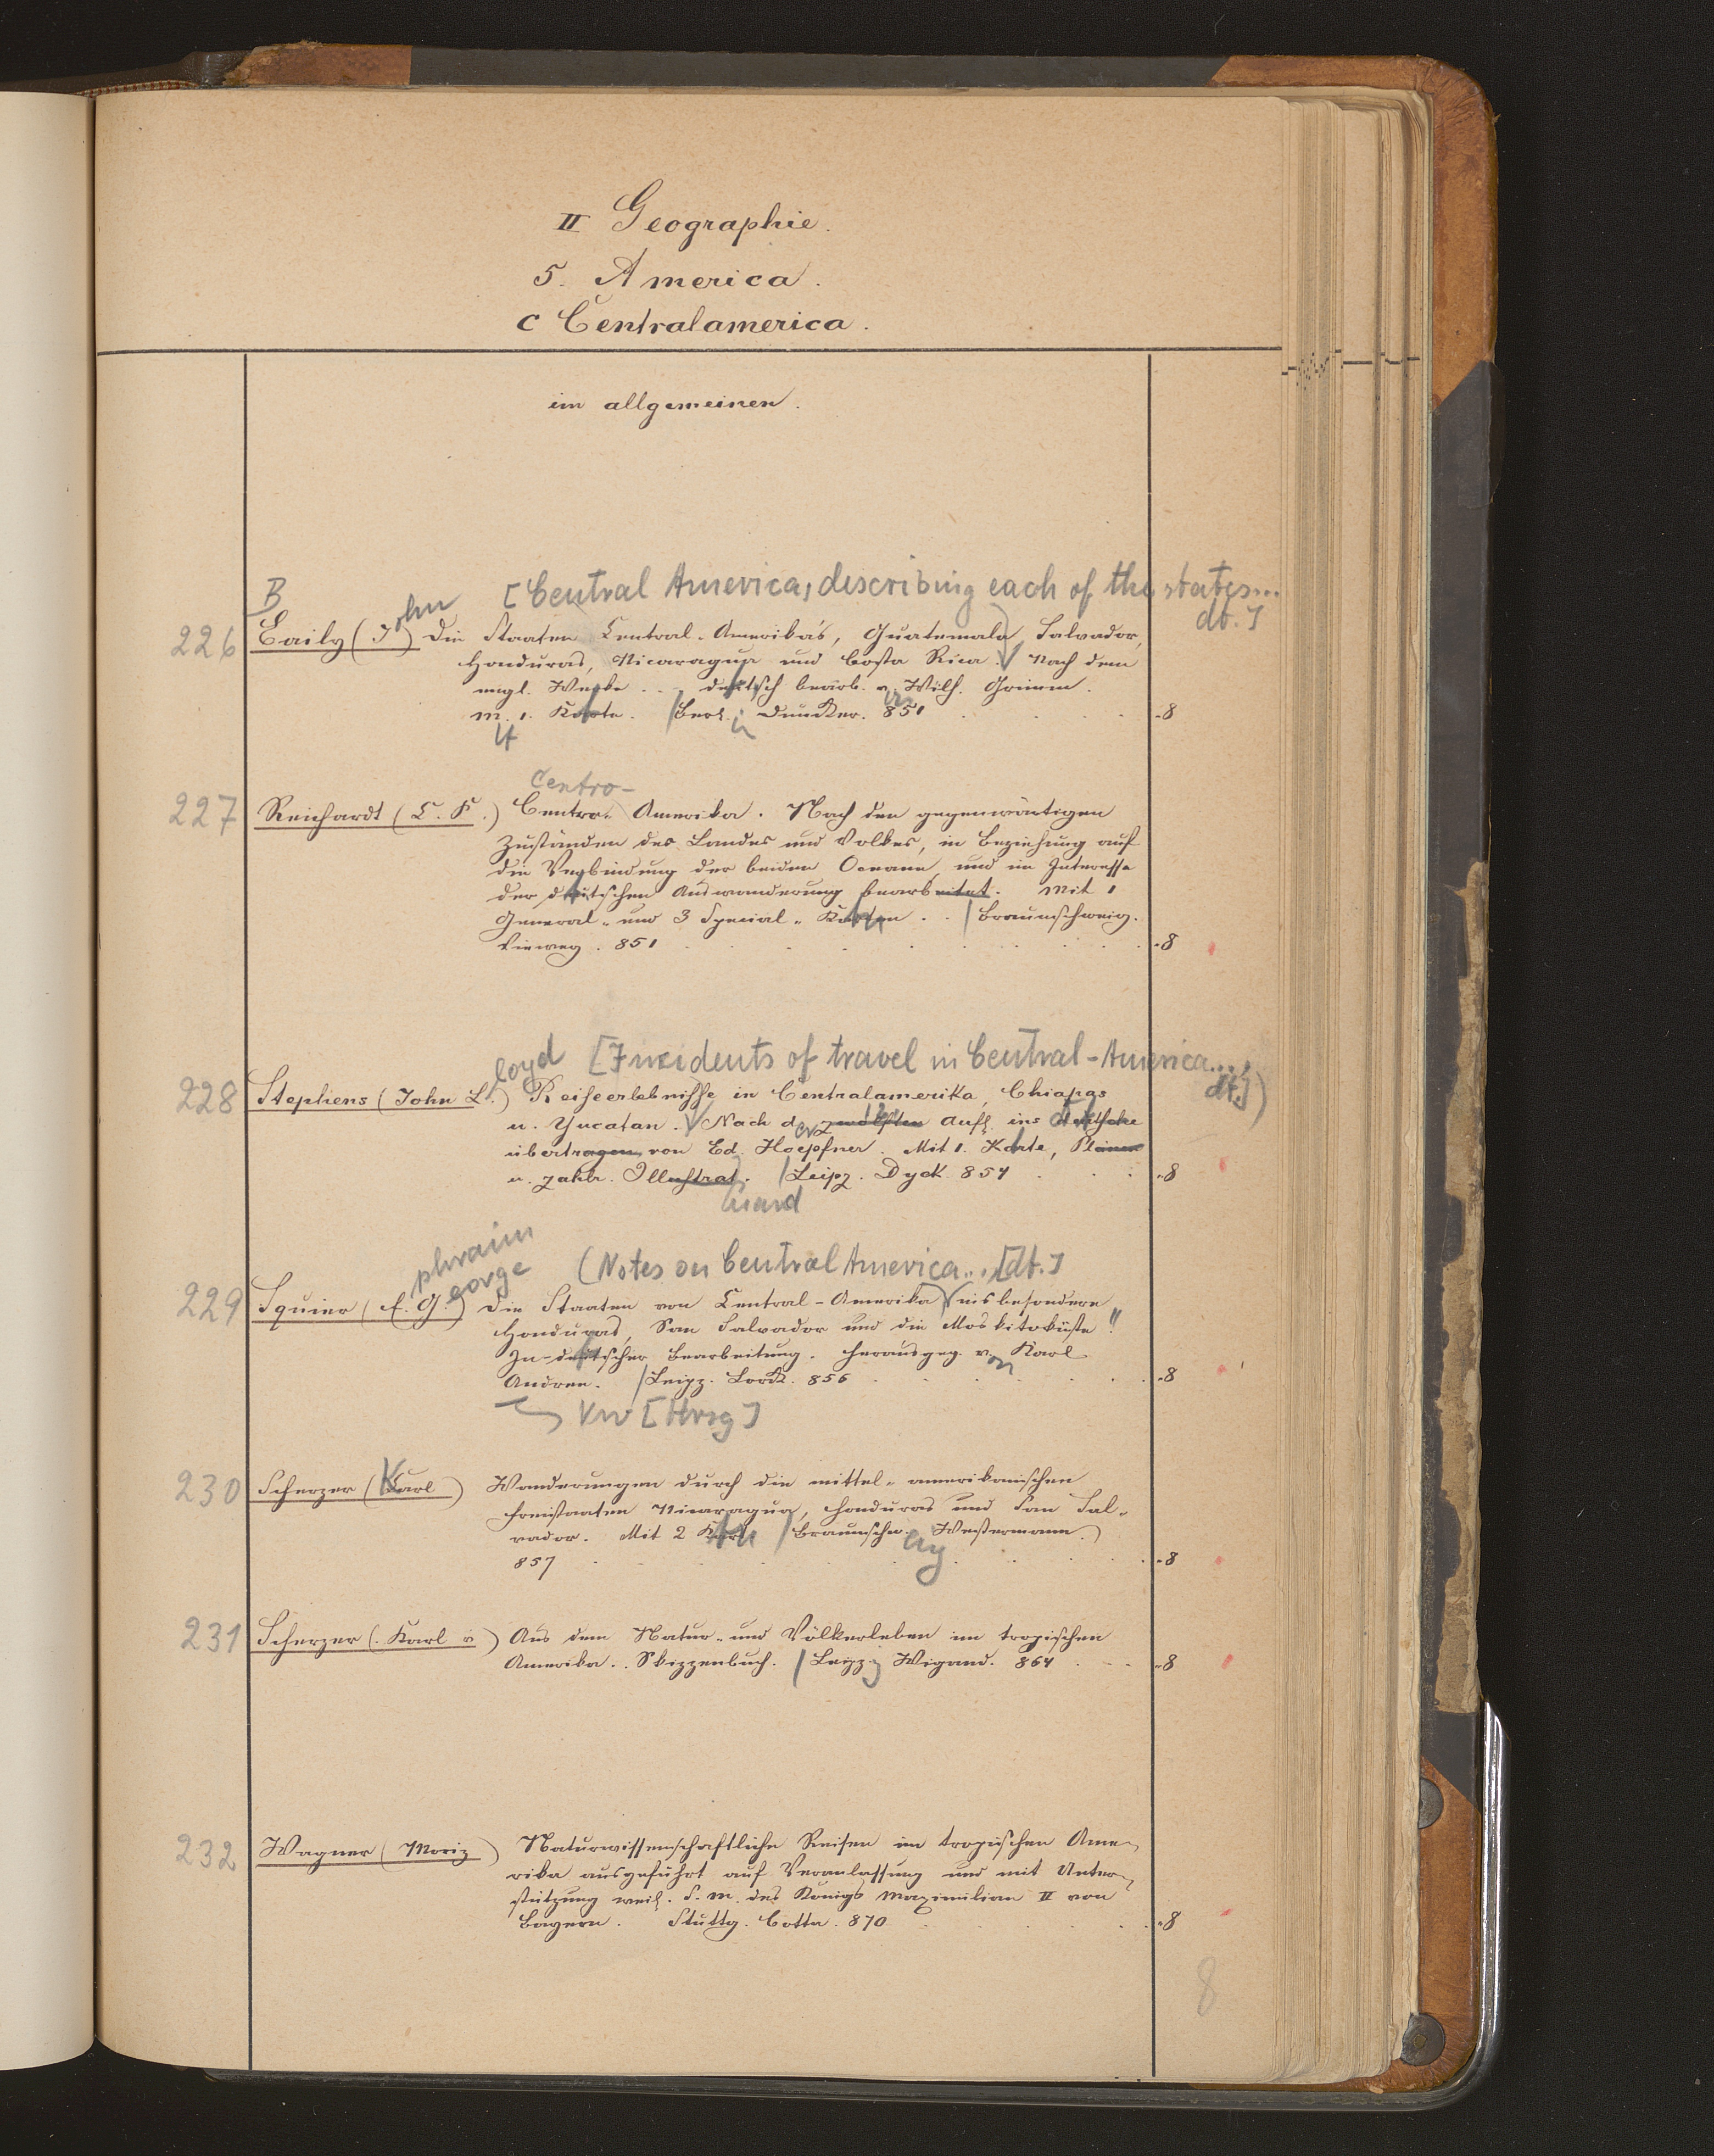 II Geographie.
5. America.
c Centralamerica.
im allgemeinen.
[Central America, describing each of the states...
dt.]
B
ohn
226 Baily (J) Die Staaten Central-Amerika's, Guatemala, Salvador,
Honduras, Nicaragua und Costa Rica. Nach dem
engl. Werke ... deutsch bearb. v. Wilh. Grimm.
M. 1. Karte. Berl. Duncker. 851 8
Centro-
227 Reichardt (C. F.) Centro-Amerika. Nach den gegenwärtigen
Zuständen des Landes und Volkes, in Beziehung auf
die Verbindung der beiden Oceane, und im Interesse
der deutschen Auswanderung bearbeitet. Mit 1
General- und 3 Special-Karten. Braunschweig.
Vieweg. 851 8
loyd [Incidents of travel in Central-America...,
dt.])
228 Stephens (John L.) Reiseerlebnisse in Centralamerika, Chiapas
u. Yucatan. Nach d. zwölften Aufl. ins Deutsche
übertragen von Ed. Hoepfner. Mit 1. Karte, Plänen
u. zahlr. Illustrat. Leipz. Dyck. 854 8
phraim
eorge
(Notes on Central America...[dt.]
229 Squier (E. G.) Die Staaten von Central-Amerika insbesondere
Honduras, San Salvador und die Moskitoküste!!
In deutscher Bearbeitung. Herausgeg. von Karl
Andree. Leipz. Lorck. 856 8
VW [Hrsg]
230 Scherzer (Karl) Wanderungen durch die mittel-amerikanischen
Freistaaten Nicaragua, Honduras und San Sal-
vador. Mit 2 Kart. Braunschw. Westermann.
857 8
231 Scherzer (Karl v.) Aus dem Natur- und Völkerleben im tropischen
Amerika. Skizzenbuch. Leipz. Wigand. 864 8
232 Wagner (Moriz) Naturwissenschaftliche Reisen im tropischen Ame-
rika ausgeführt auf Veranlassung und mit Unter-
stützung weil. S. M. des Königs Maximilian II von
Bayern. Stuttg. Cotta. 870 8
8